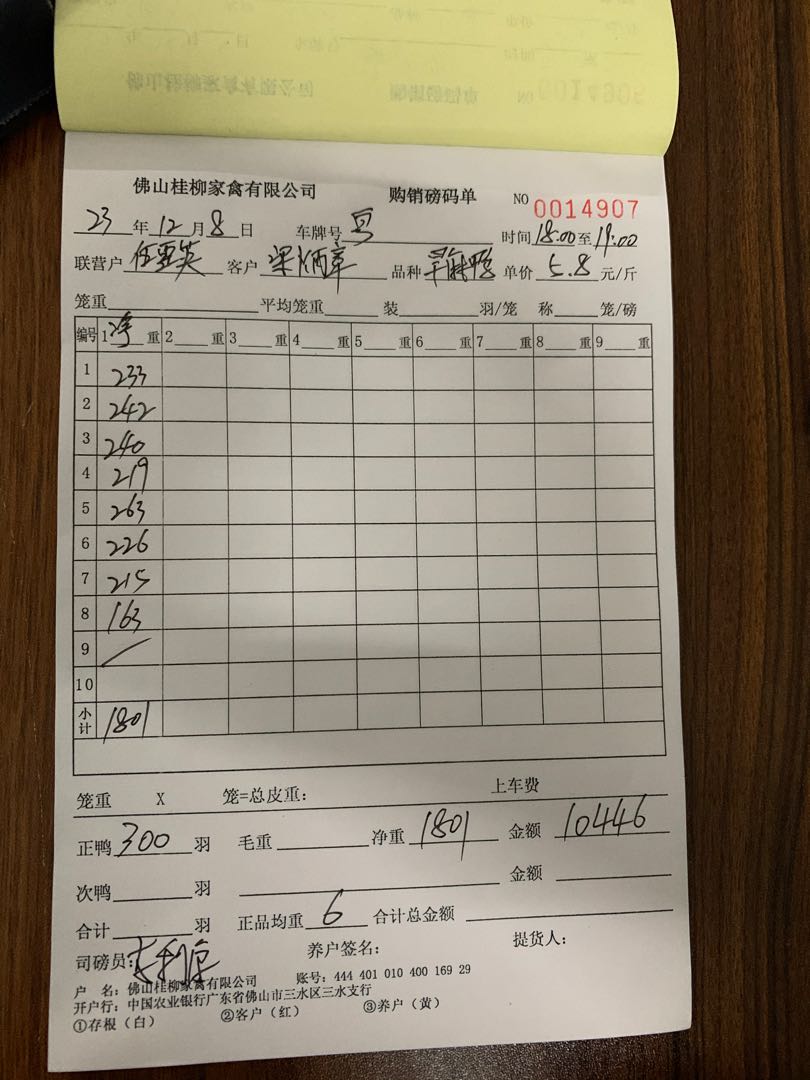 佛山桂柳家禽有限公司 购销磅码单 NO 0014907
23年12月8日 车牌号 时间18:00至19:00
联营户 客户 梁炳章 品种 单价5.8元/斤
笼重 平均笼重 装 羽/笼 称 笼/磅
编号 1净重 2 重 3 重 4 重 5 重 6 重 7 重 8 重 9 重
1 233
2 242
3 240
4 219
5 263
6 226
7 215
8 163
9 /
10
小计 1801
笼重 X 笼=总皮重: 上车费
正鸭300羽 毛重 净重1801 金额10446
次鸭 羽 金额
合计 羽 正品均重6 合计总金额
司磅员: 养户签名: 提货人:
户 名: 佛山桂柳家禽有限公司 账号: 444 401 010 400 169 29
开户行: 中国农业银行广东省佛山市三水区三水支行
①存根(白) ②客户(红) ③养户(黄)